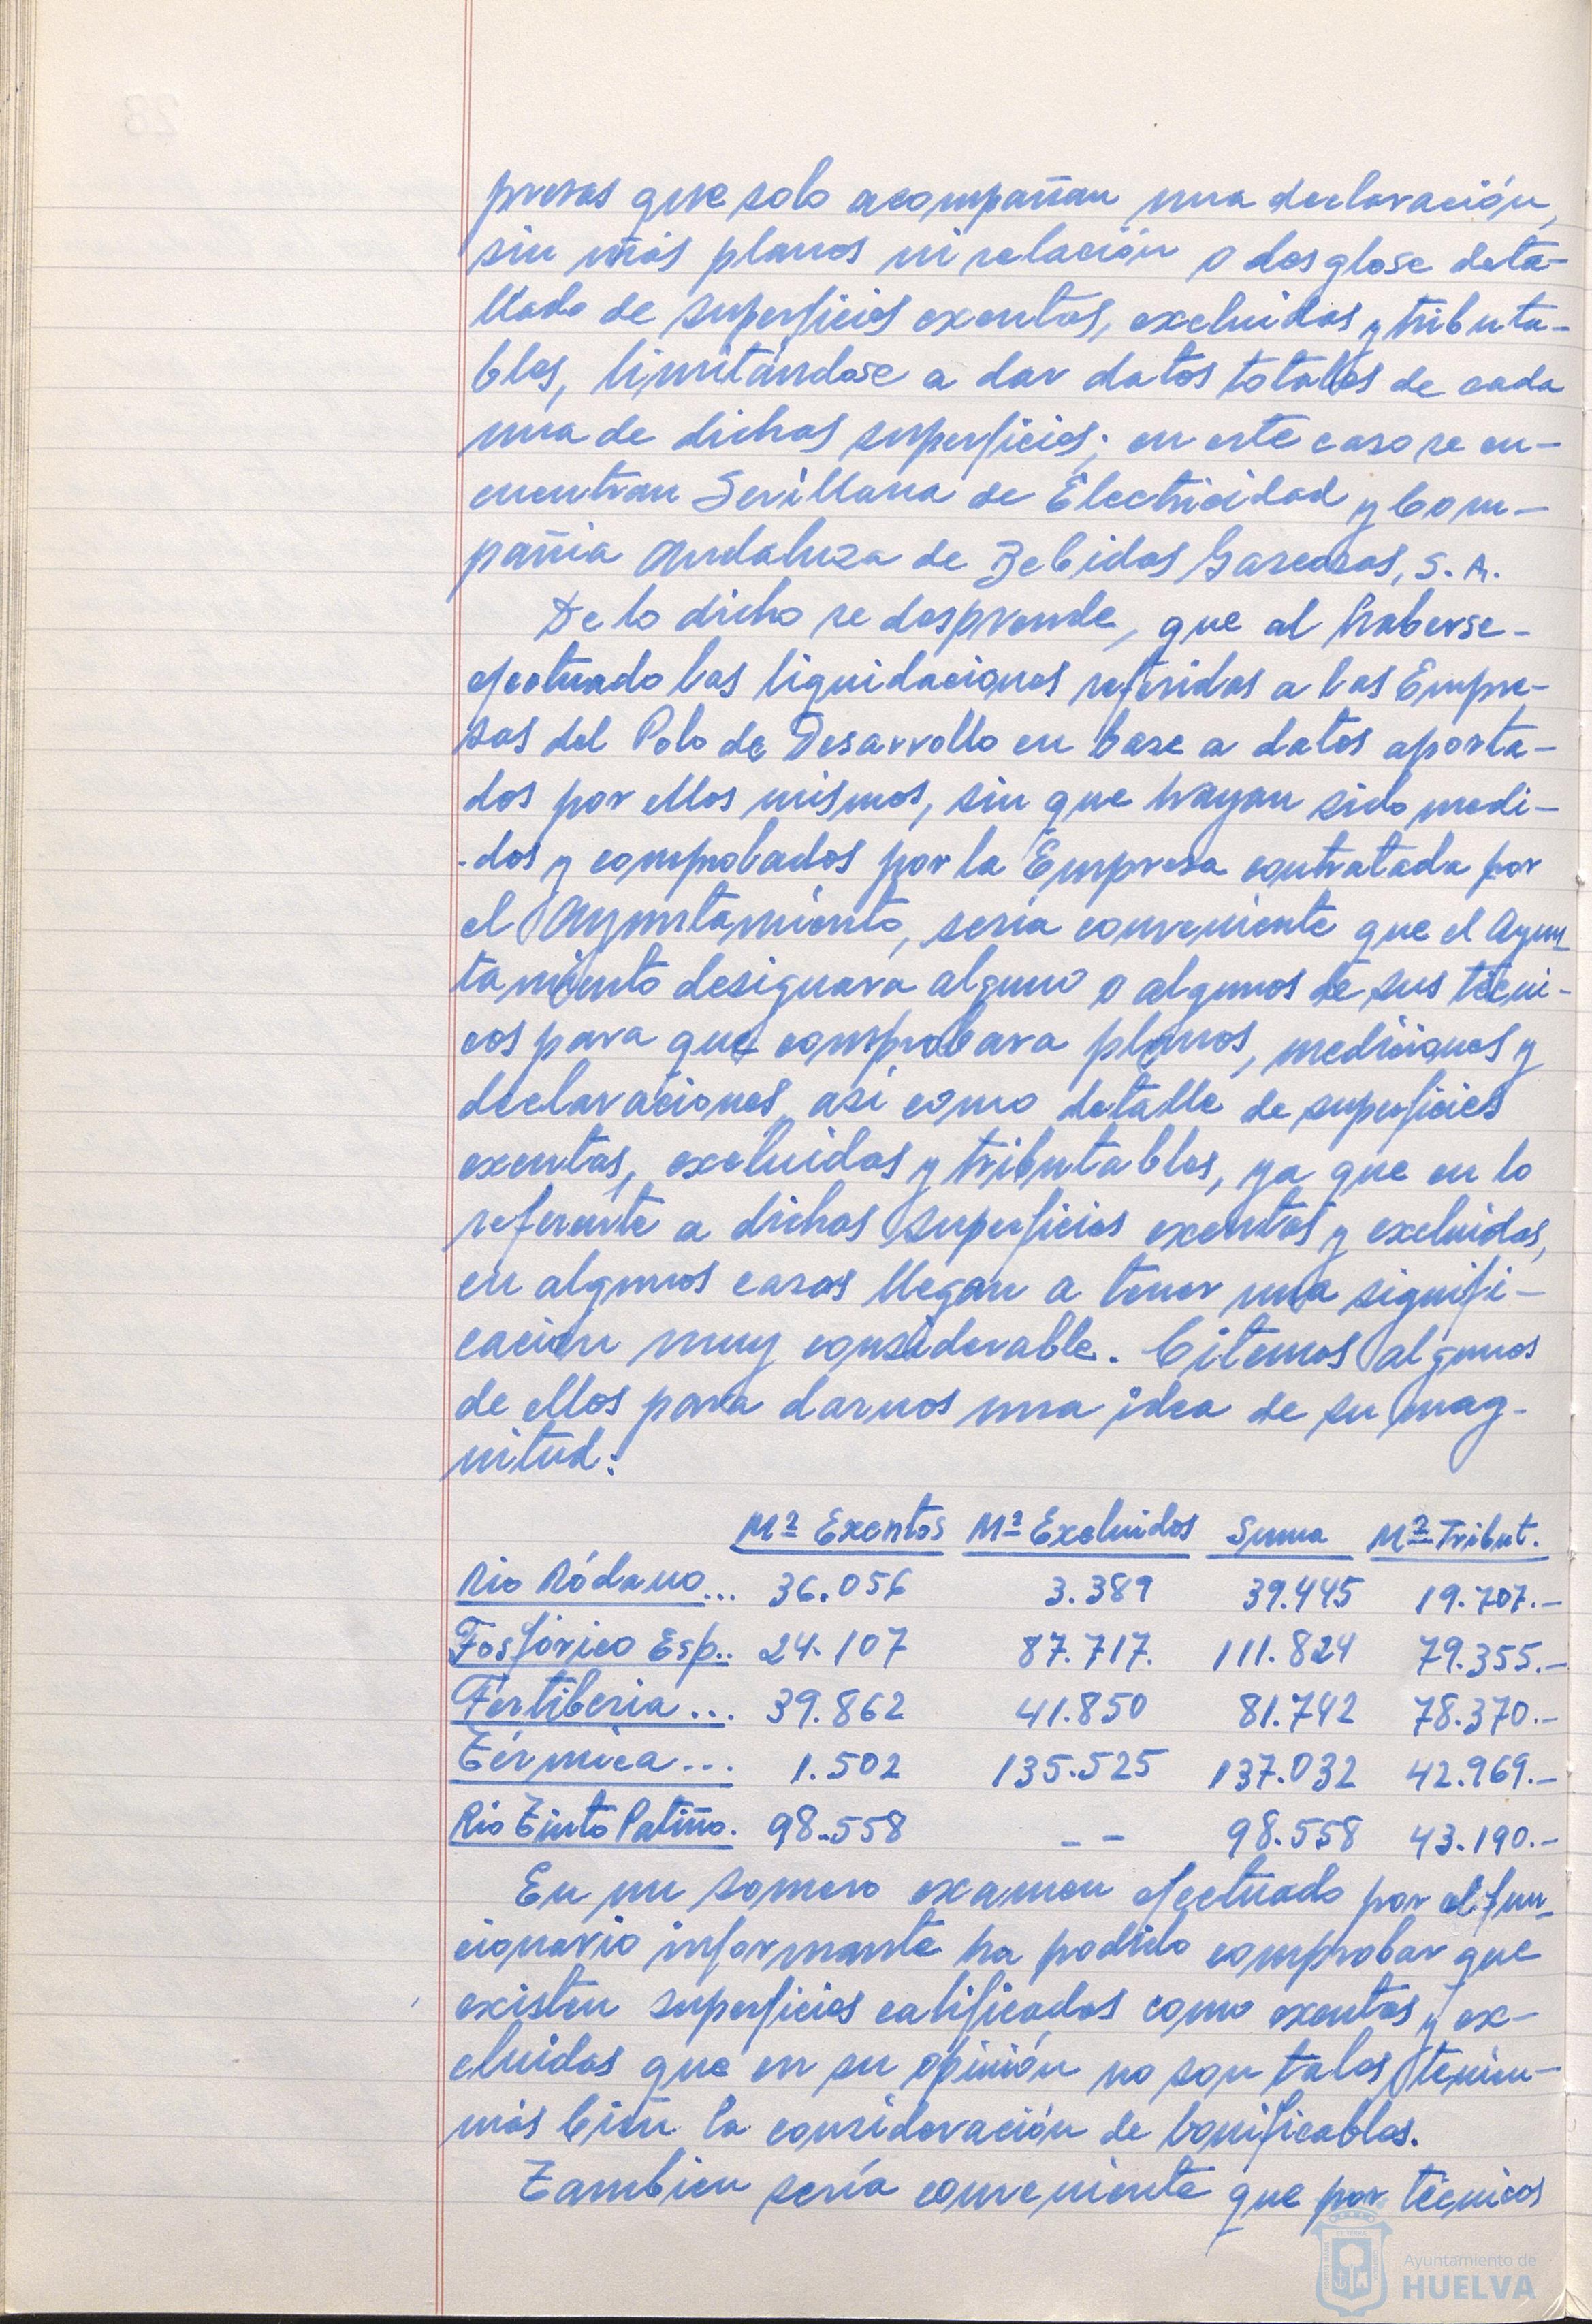 presas que solo acompañan una declaración,
sin más planos ni relación o desglose deta-
llado de superficies exentas, excluidas y tributa-
bles, limitándose a dar datos totales de cada
una de dichas superficies; en este caso se en-
cuentran Sevillana de Electricidad y Com-
pañia Andaluza de Bebidas Gaseosas, S.A.
De lo dicho se desprende, que al haberse-
efectuado las liquidaciones referidas a las Empre-
sas del Polo de Desarrollo en base a datos aporta-
dos por ellas mismos, sin que hayan sido medi-
-dos y comprobados por la Empresa contratada por
el Ayuntamiento, sería conveniente que el Ayun
tamiento designara alguno o algunos de sus técni-
cos para que comprobara planos, mediciones y
declaraciones, así como detalle de superficies
exentas, excluidas y tributables, ya que en lo
referente a dichas superficies exentas y excluidas,
en algunos casos llegan a tener una signifi-
cación muy considerable. Citemos algunos
de ellos para darnos una idea de su mag-
nitud:
M² Exentos M² Excluidos Suma M² Tribut.
Rio Ródano... 36.056 3.389 39.445 19.707.-
Fosfórico Esp.. 24.107 87.717. 111.824 79.355.-
Fertiberia... 39.862 41.850 81.742 78.370.-
Térmica... 1.502 135.525 137.032 42.969.-
Rio Tinto Patiño. 98.558 -- 98.558 43.190.-
En un somero examen efectuado por el fun-
cionario informante ha podido comprobar que
existen superficies calificadas como exentas y ex-
cluidas que en su opinión no son tales
más bien la consideración de bonificables.
Tambien sería conveniente que por técnicos
Ayuntamiento de
HUELVA